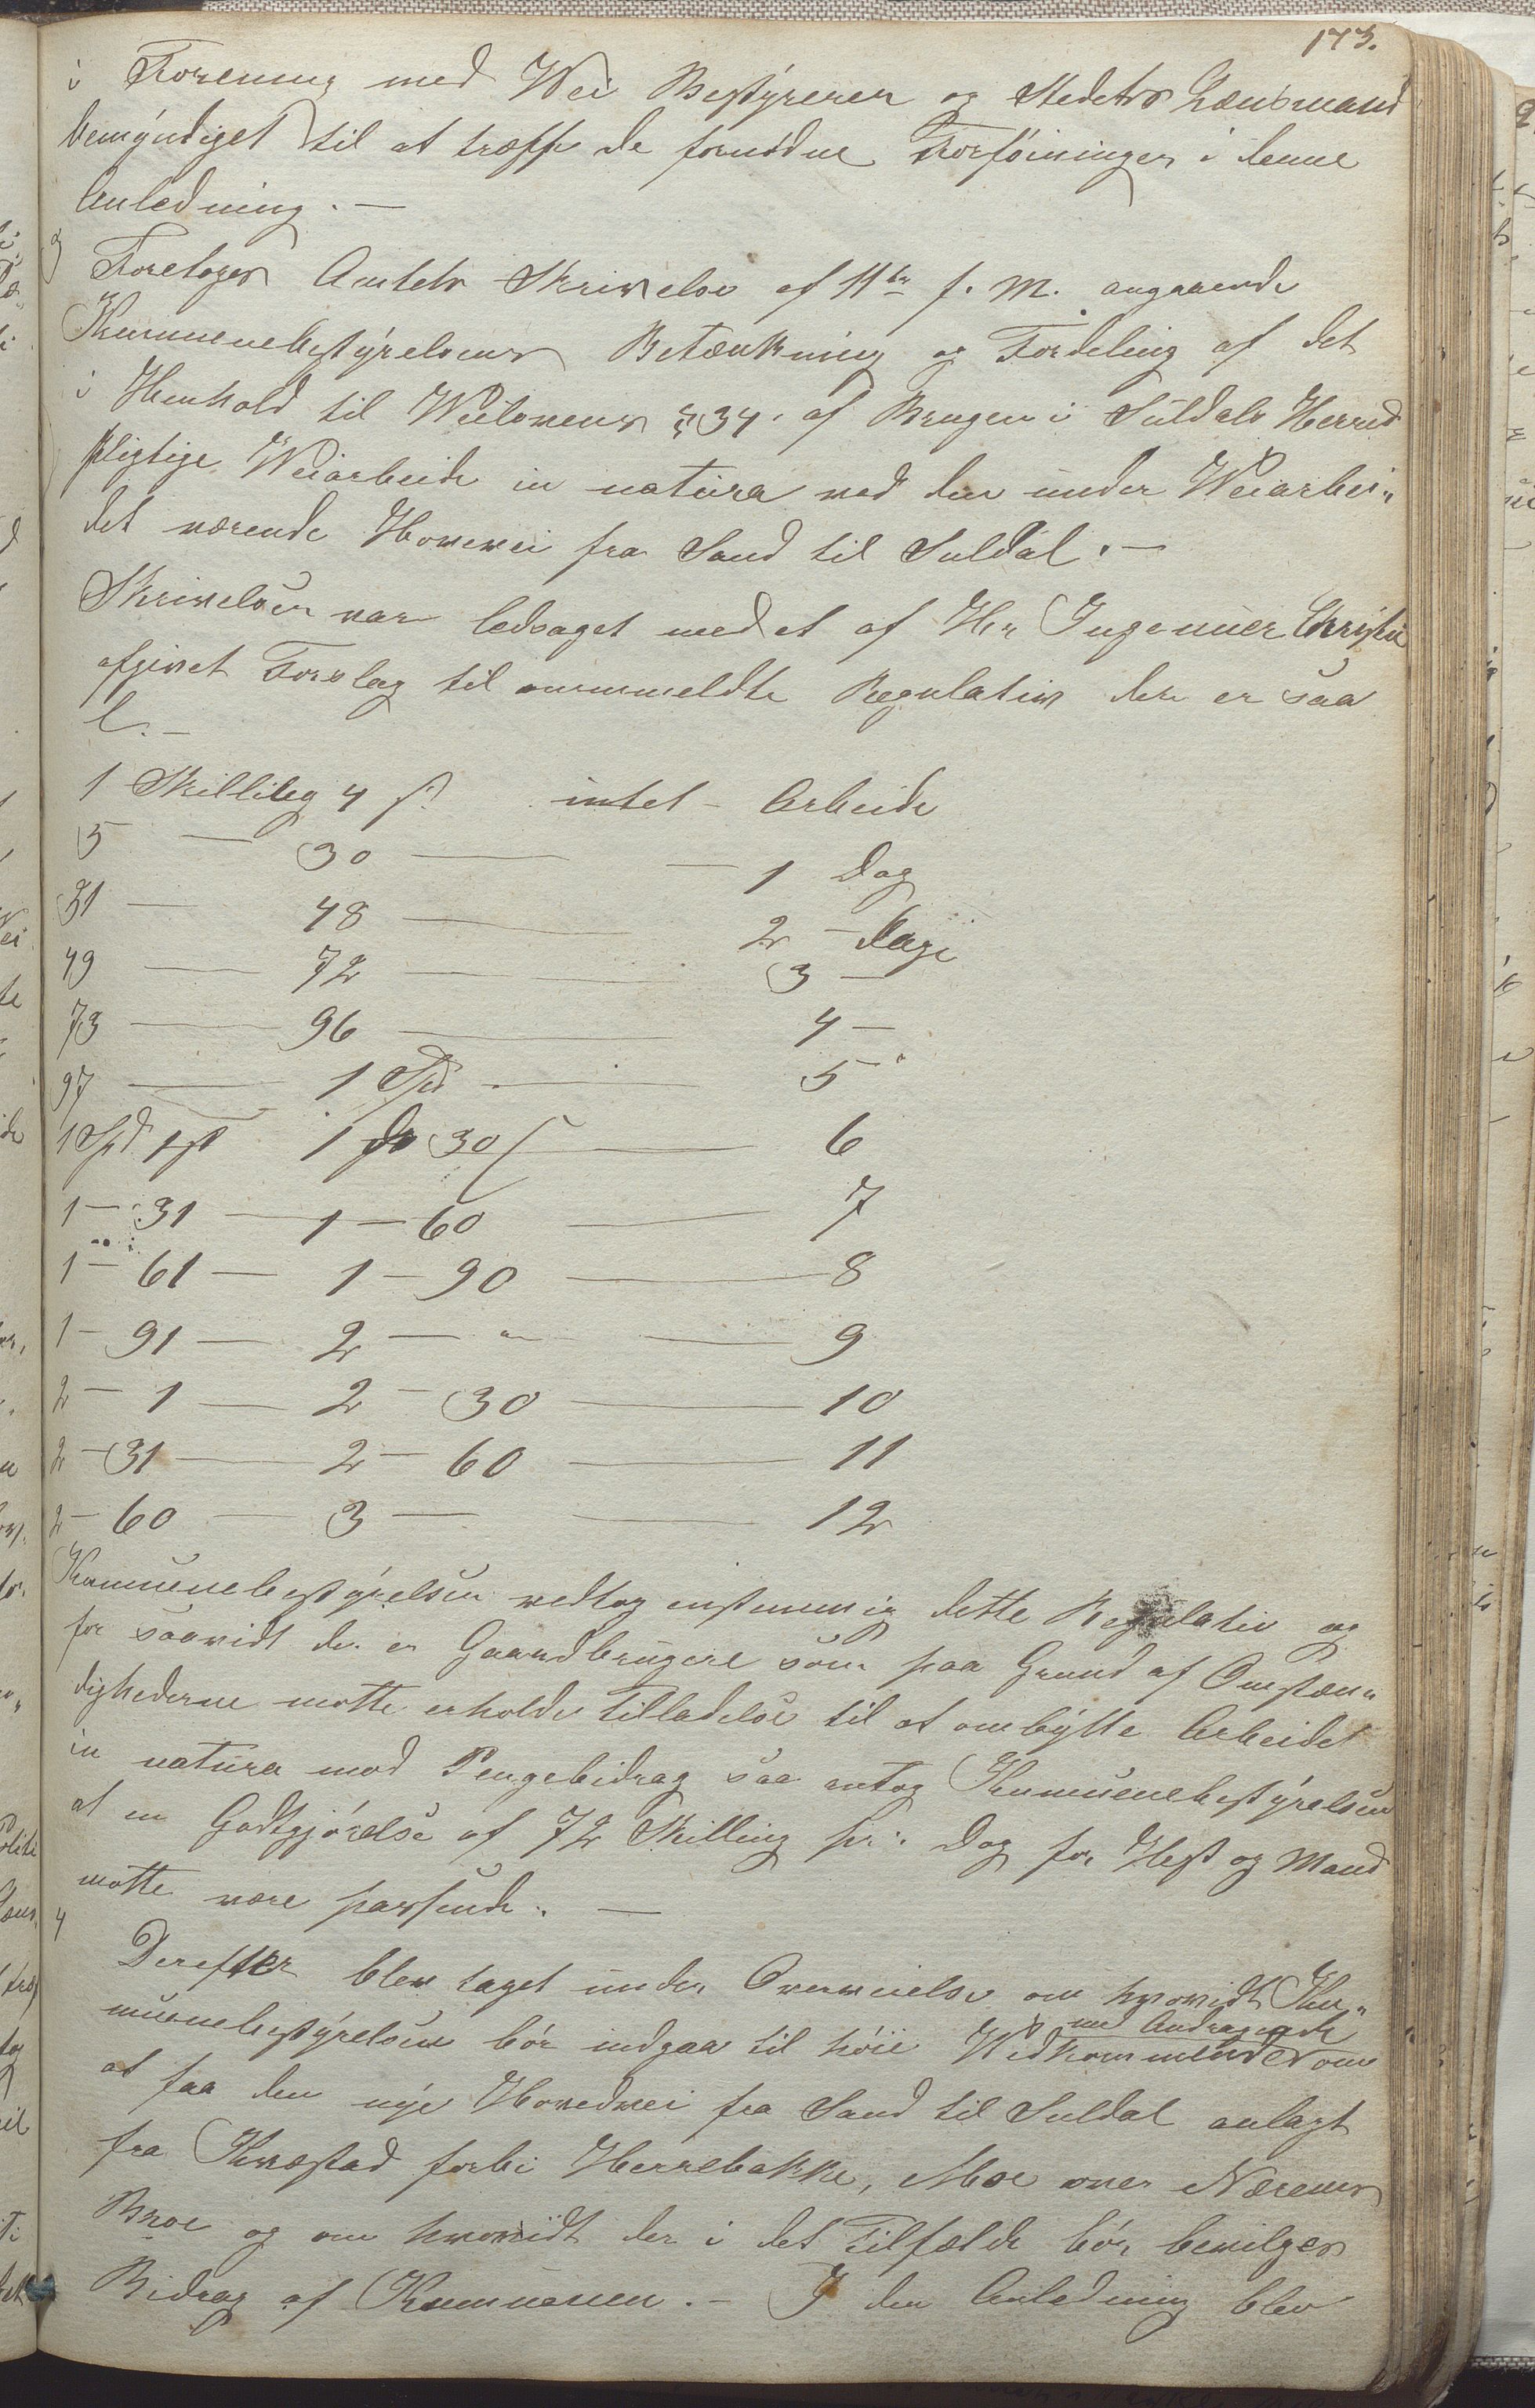 173.
i Forening med Wei Bestÿreren og Stedets Lænsmand
bemÿndiget til at træffe de fornødne Forføininger i denne
Anledning. —
3
Foretoges Amtets Skrivelse af 11te f. M. angaaende
Kummunebestÿrelsens Betænkning og Fordeling af det
i Henhold til Weilovens § 34. af Brugen i Suldals Herred
pligtige Weiarbeide in natura ved den under Weiarbei„
det værende Hovevei fra Sand til Suldal. —
Skrivelsen var ledsaget med et af Hr Ingeniier Christie
afgivet Forslag til anmeldte Regulativ der er saa
l. —
1 Skilling 4 ß. intet – Arbeide
5 — 30 — — 1 Dag
31 — 48 — 2 – Dage
49 — 72 — 3 —
73 — 96 — 4 —
97 — 1 Spd — 5
1 Spd 1 ß 1 do 30 ß — 6
1 — 31 — 1 — 60 — 7
1 — 61 — 1 — 90 — 8
1 – 91 — 2 — „ — 9
2 – 1 — 2 – 30 — 10
2 – 31 — 2 – 60 — 11
2 – 60 — 3 — — 12
Kummunebestÿrelsen vedtog enstemmig dette Regulativ og
for saavidt der er Gaardbrugere som paa Grund af Omstæn„
dighederne motte erholde Tilladelse til at ombÿtte Arbeidet
in natura mod Pengebidrag saa antog Kummunebestÿrelsen
at en Godtgjørelse af 72 Skilling pr: Dag for Hest og Mand
motte være passende. —
4
Derefter blev taget under Overveielse om hvorvidt Kum„
munebestÿrelsen bør indgaa til høie Wedkommende
med Andragende
om
at faa den nÿe Hovedvei fra Sand til Suldal anlagt
fra Kvæstad forbi Herrebakke, Moe over Nærems
Broe og om hvorvidt der i det Tilfælde bør bevilges
Bidrag af Kummunen. – I den Anledning blev